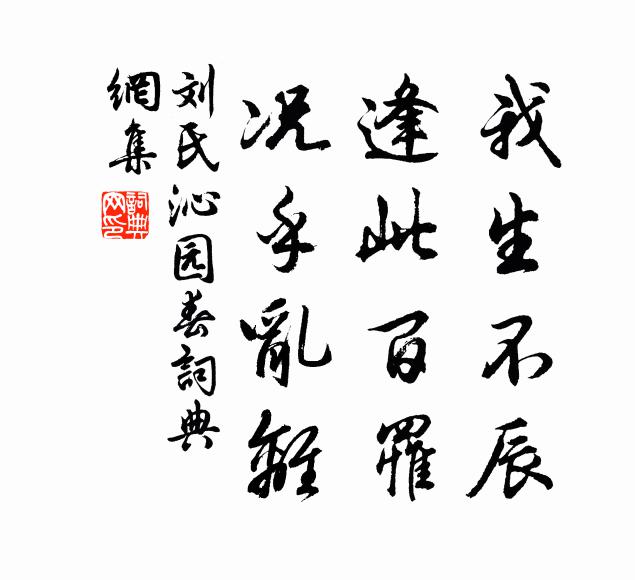 我生不辰
逢此百罹
况乎亂離
刘氏沁园春詞典
網集
詞典
网印